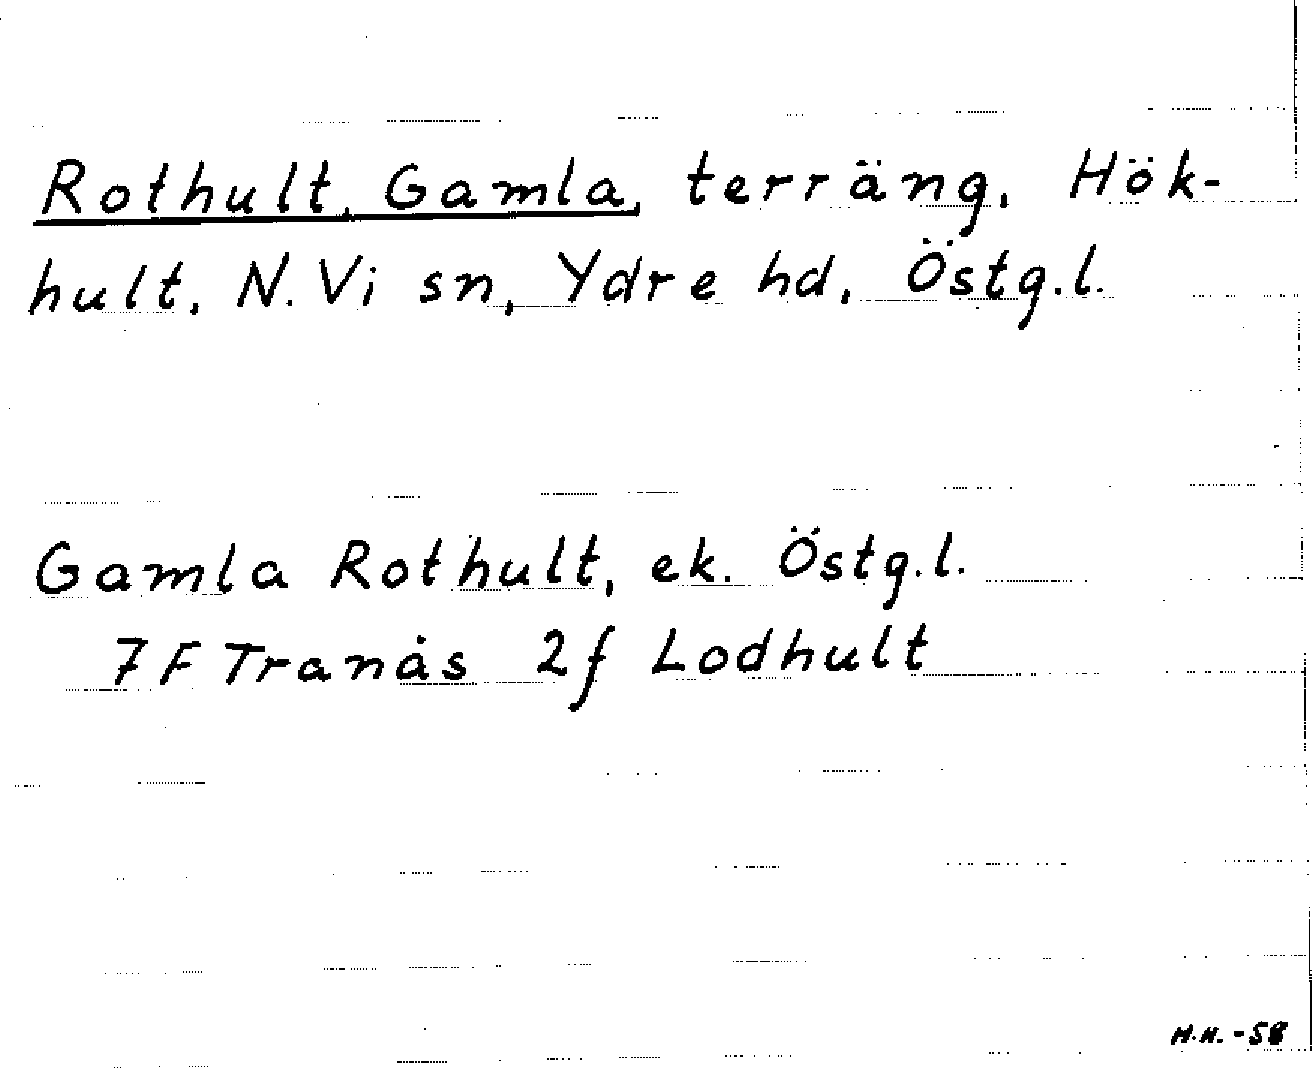 Rothult, Gamla, terräng, Hök-
hult, N. Vi sn, Ydre hd, Östg.l.
Gamla Rothult, ek. Östg.l.
7 F Tranås 2f Lodhult
H.H. -58